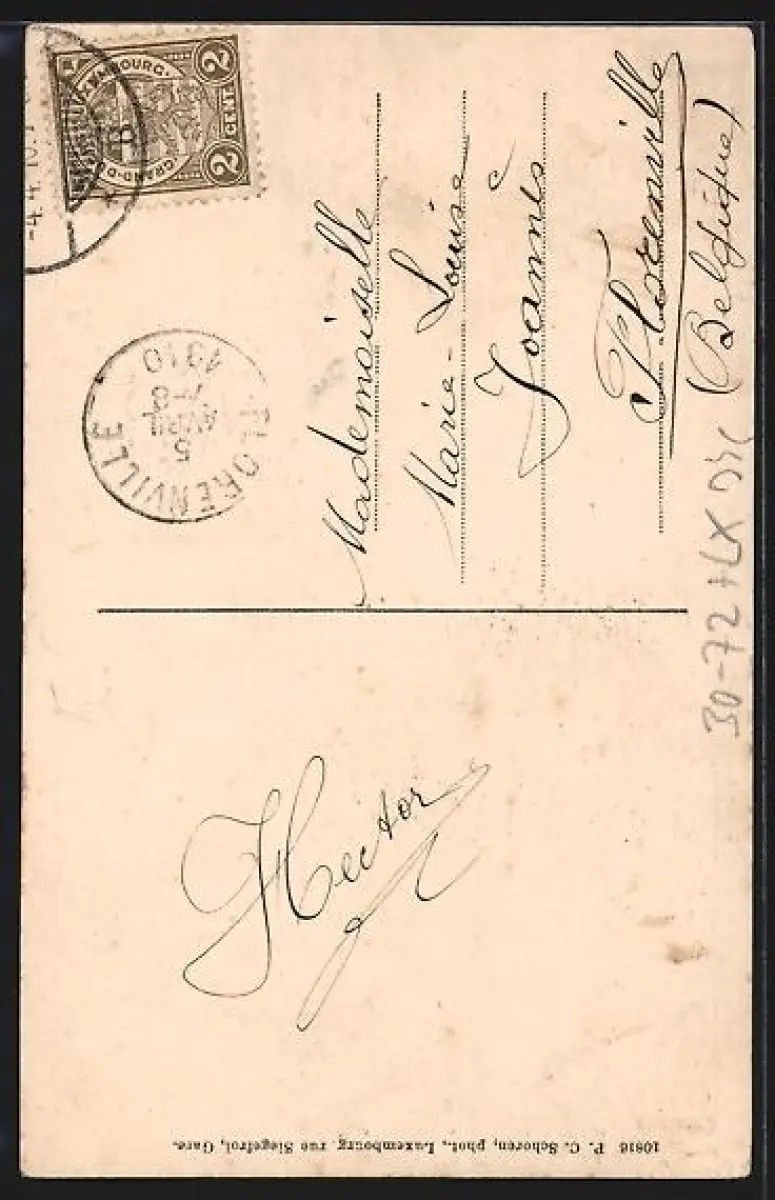 LUXEMBOURG
GRAND-D
2 CENT 2
-4.4.10.
FLORENVILLE
5
AVRIL
1910
Mademoiselle
Marie-Louise
Joannès
Florenville
(Belgique)
Hector
10816 P. C. Schoren, phot., Luxembourg. rue Siegefroi, Gare.